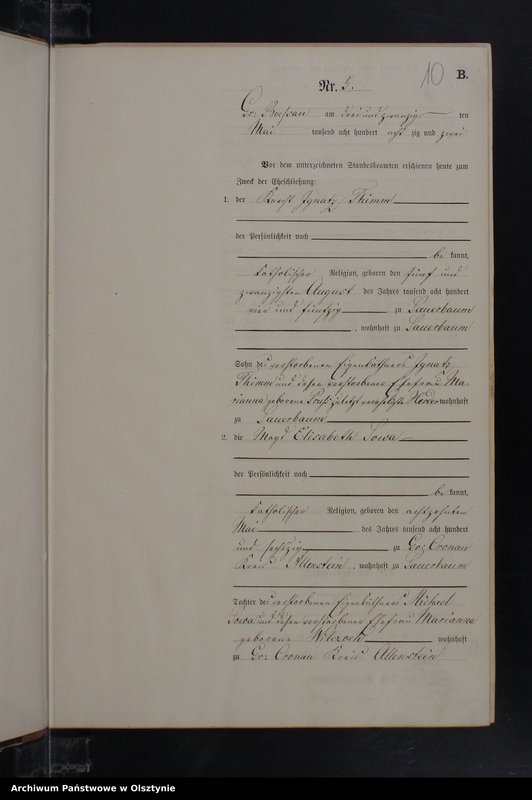 10 B.
Nr. 5.
Gr: Boessau am drei und zwanzig ten
Mai tausend acht hundert acht zig und zwei
Vor dem unterzeichneten Standesbeamten erschienen heute zum
Zweck der Eheschließung:
1. der Knecht Ignatz Thimm
der Persönlichkeit nach
be kannt,
katholischer Religion, geboren den fünf und
zwanzigsten August des Jahres tausend acht hundert
vier und fünfzig zu Sauerbaum
, wohnhaft zu Sauerbaum
Sohn des verstorbenen Eigenkäthners Ignatz
Thimm und dessen verstorbener Ehefrau Ma-
rianna geborene verehelichte wohnhaft
zu Sauerbaum
2. die Magd Elisabeth Sowa
der Persönlichkeit nach
be kannt,
katholischer Religion, geboren den achtzehnten
Mai des Jahres tausend acht hundert
und sechszig zu Gr: Cronau
Kreis Allenstein, wohnhaft zu Sauerbaum
Tochter des verstorbenen Eigenkäthners Michael
Sowa und dessen verstorbener Ehefrau Marianna
geborene Wilczoch wohnhaft
zu Gr: Cronau Kreis Allenstein
Archiwum Państwowe w Olsztynie